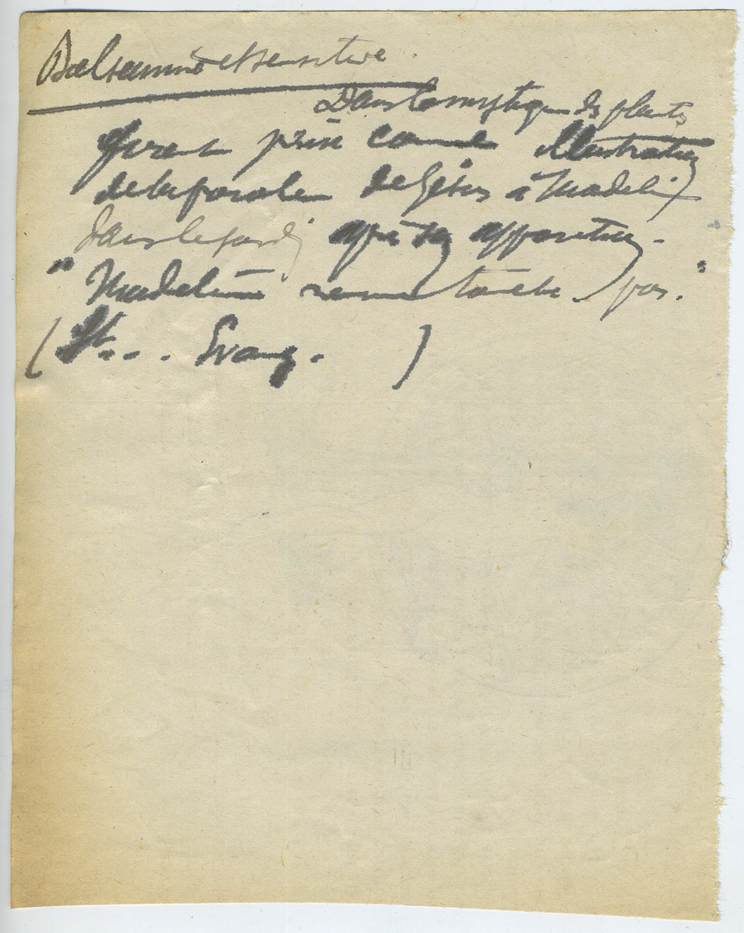 Balsamine et sensitive.
Dans la mystique des plantes
furent prise comme illustration
de la parole de Jésus à Madeleine
dans le jardin après son apparition.
" Madeleine ne me touche pas."
( St... Evang. )